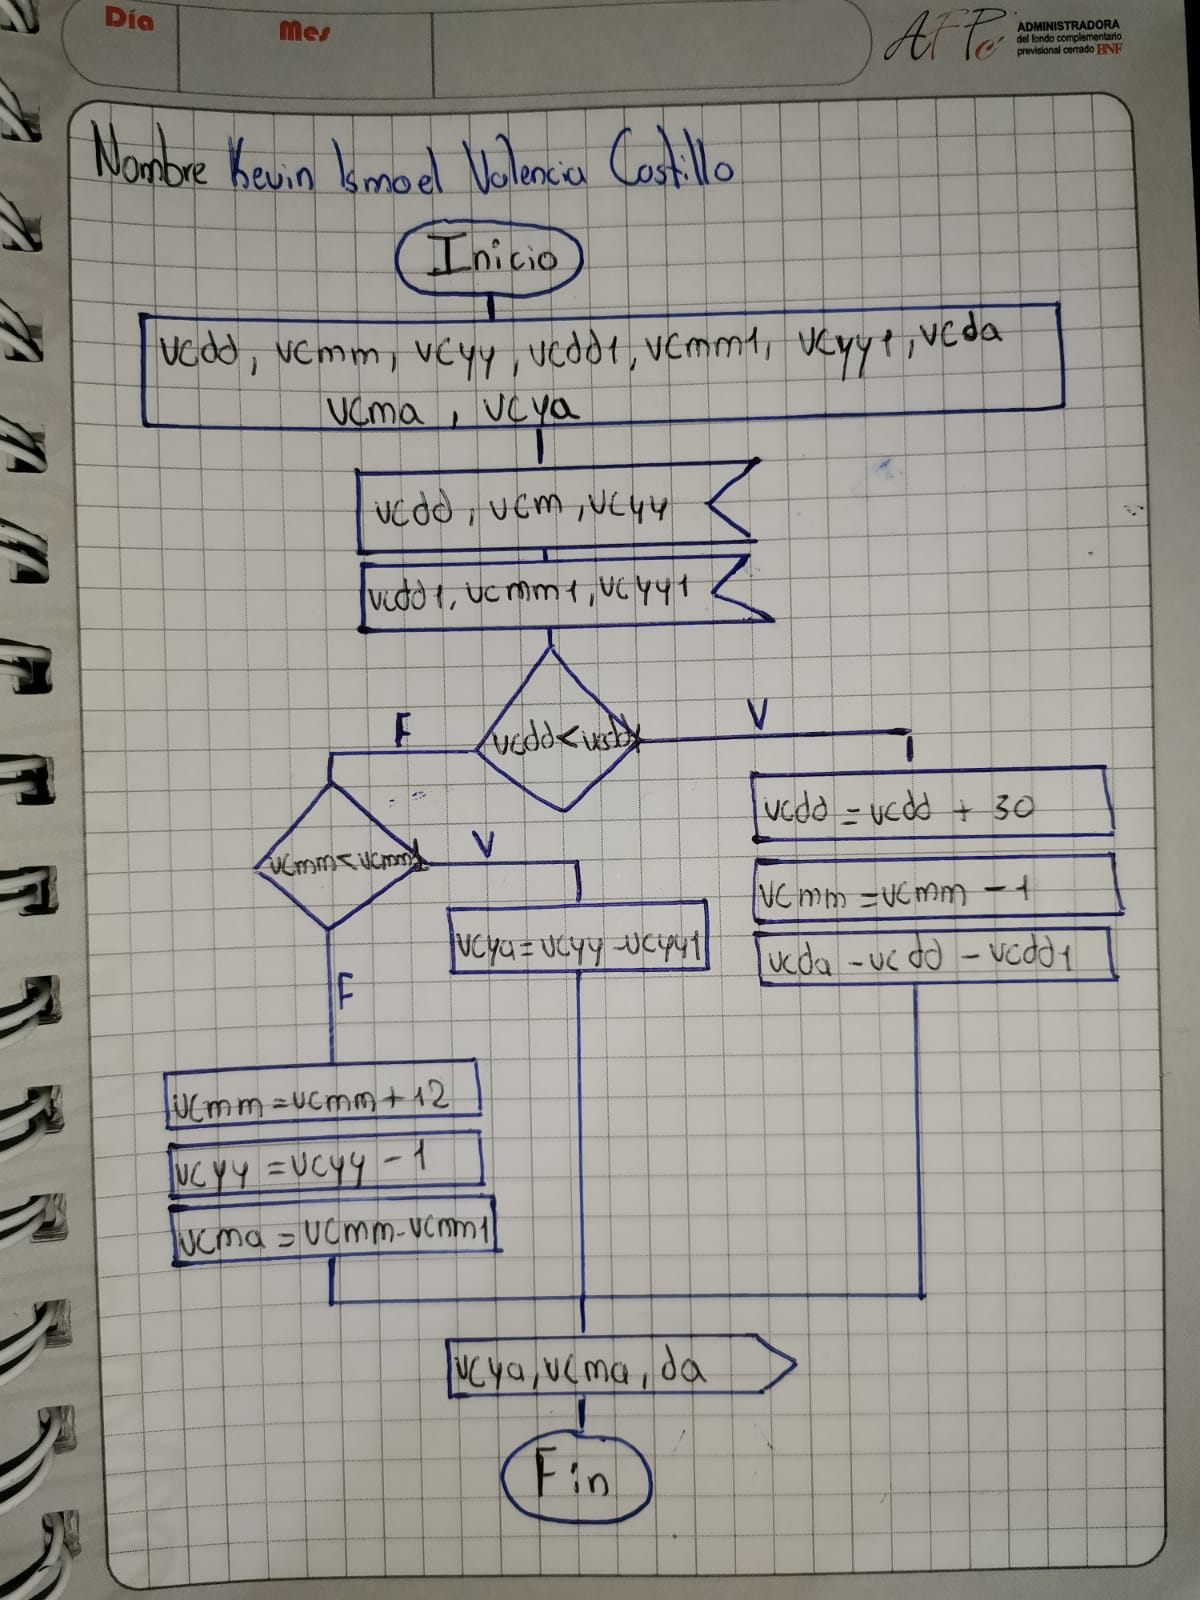 Día
Mes
AFPc
ADMINISTRADORA
del fondo complementario
previsional cerrado BNF
Nombre Kevin Ismael Valencia Castillo
Inicio
vcdd, vcmm, vcyy, vcdd1, vcmm1, vcyy1, vcda
vcma, vcya
vcdd, vcm, vcyy
vcdd1, vcmm1, vcyy1
F
V
vcdd<vcdd1
vcdd = vcdd + 30
V
vcmm<vcmm1
vcmm = vcmm - 1
vcya = vcyy - vcyy1
vcda - vcdd - vcdd1
F
vcmm = vcmm + 12
vcyy = vcyy - 1
vcma = vcmm - vcmm1
vcya, vcma, da
Fin